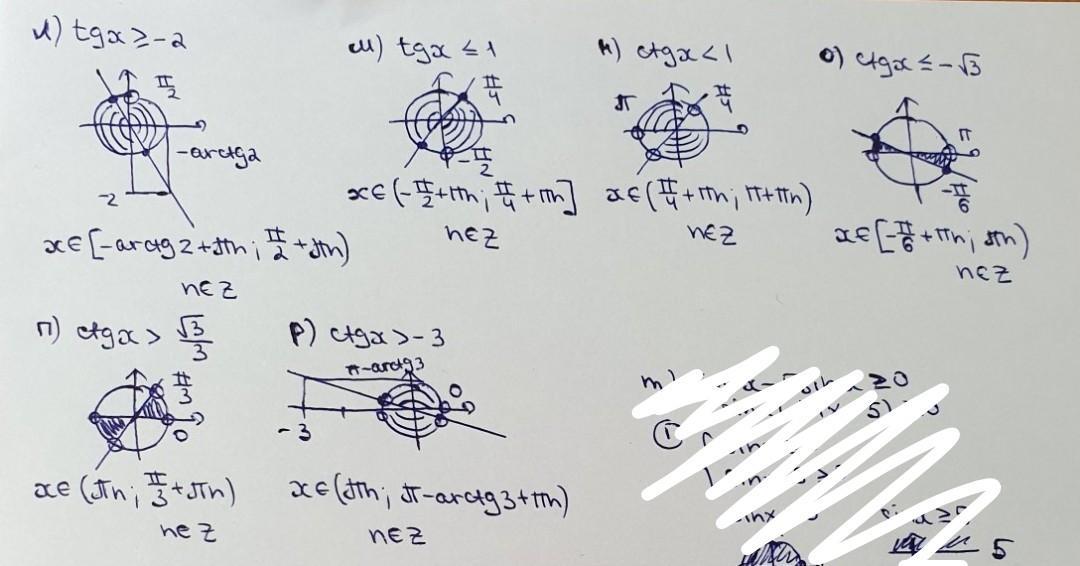 л) tgx ≥ -2
π/2
-arctg2
-2
x∈[-arctg2+πn; π/2+πn)
n∈Z
м) tgx ≤ 1
π/4
-π/2
x∈(-π/2+πn; π/4+πn]
n∈Z
н) ctgx < 1
π
π/4
x∈(π/4+πn; π+πn)
n∈Z
о) ctgx ≤ -√3
π
-π/6
x∈[-π/6+πn; πn)
n∈Z
п) ctgx > √3/3
π/3
0
x∈(πn; π/3+πn)
n∈Z
р) ctgx > -3
π-arctg3
0
-3
x∈(πn; π-arctg3+πn)
n∈Z
m)
≥ 0
5)
①
5